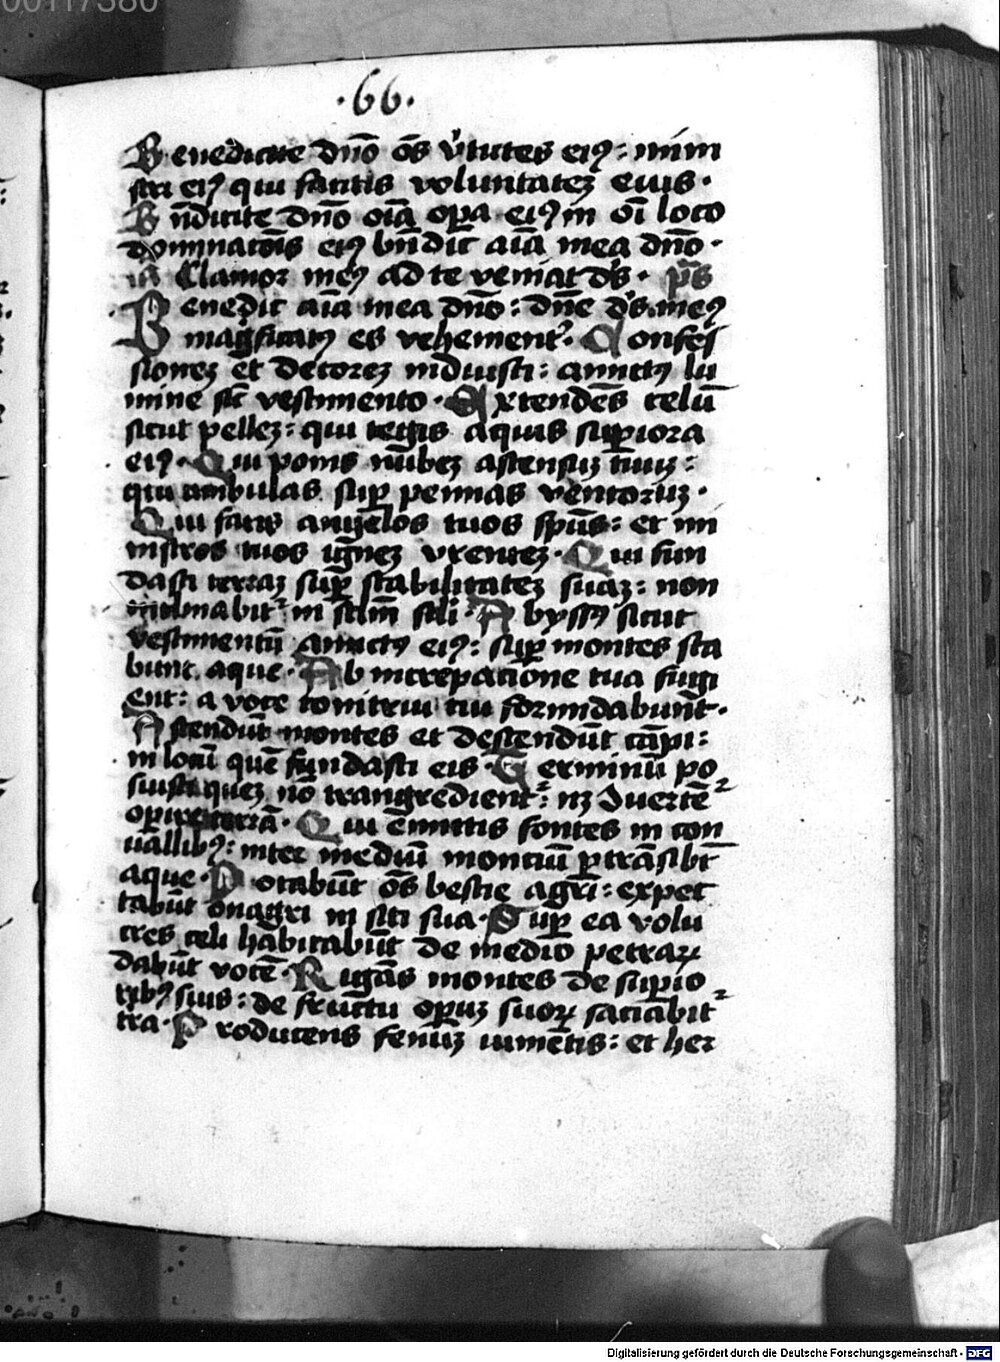 00117380
·66·
Benedicite dño oẽs v̓tutes eiꝰ: mini
stri eiꝰ qui facitis voluntateʒ eius·
Bñdicite dño oĩa oꝑa eiꝰ in oĩ loco
dominatõis eiꝰ bñdic aĩa mea dño·
Clamor meꝰ ad te veniat ds̃· ps̃
Benedic aĩa mea dño: dñe ds̃ meꝰ
magͥficatꝰ es vehement᷑· Confes
sioneʒ et decoreʒ induisti: amictꝰ lu
mine sic̃ vestimento· Extendẽs celũ
sicut pelleʒ: qui tegis aquis suꝑiora
eiꝰ· Qui ponis nũbeʒ ascensuʒ tuuʒ:
qui ambulas suꝑ pennas ventoruʒ·
Qui facis angelos tuos spũs: et mi
nistros tuos igneʒ vrenteʒ· Qui fun
dasti terraʒ suꝑ stabilitateʒ suaʒ: non
inclinabit᷑ in sclm̃ scli· Abyssꝰ sicut
vestimentũ amictꝰ eiꝰ: suꝑ montes sta
bunt aque· Ab increpatione tua fugi
ent: a voce tonitrui tui formidabũt·
Ascendũt montes et descendũt cãpi:
in locũ quẽ fundasti eis· Terminũ po
suisti queʒ nõ trangredient᷑: nʒ ɔuertẽ᷑
oꝑire terrã· Qui ẽmittis fontes in con
uallibꝰ: inter mediũ montiũ ꝑtrãsibt̃
aque· Potabũt oẽs bestie agri: expec
tabũt onagri in siti sua· Suꝑ ea volu
cres celi habitabũt de medio petraꝝ
dabũt vocẽ· Rigãs montes de suꝑio
ribꝰ suis: de fructu oꝑuʒ suoꝝ saciabit᷑
tr̃a· Producens fenuʒ iumẽtis: et her
Digitalisierung gefördert durch die Deutsche Forschungsgemeinschaft - DFG